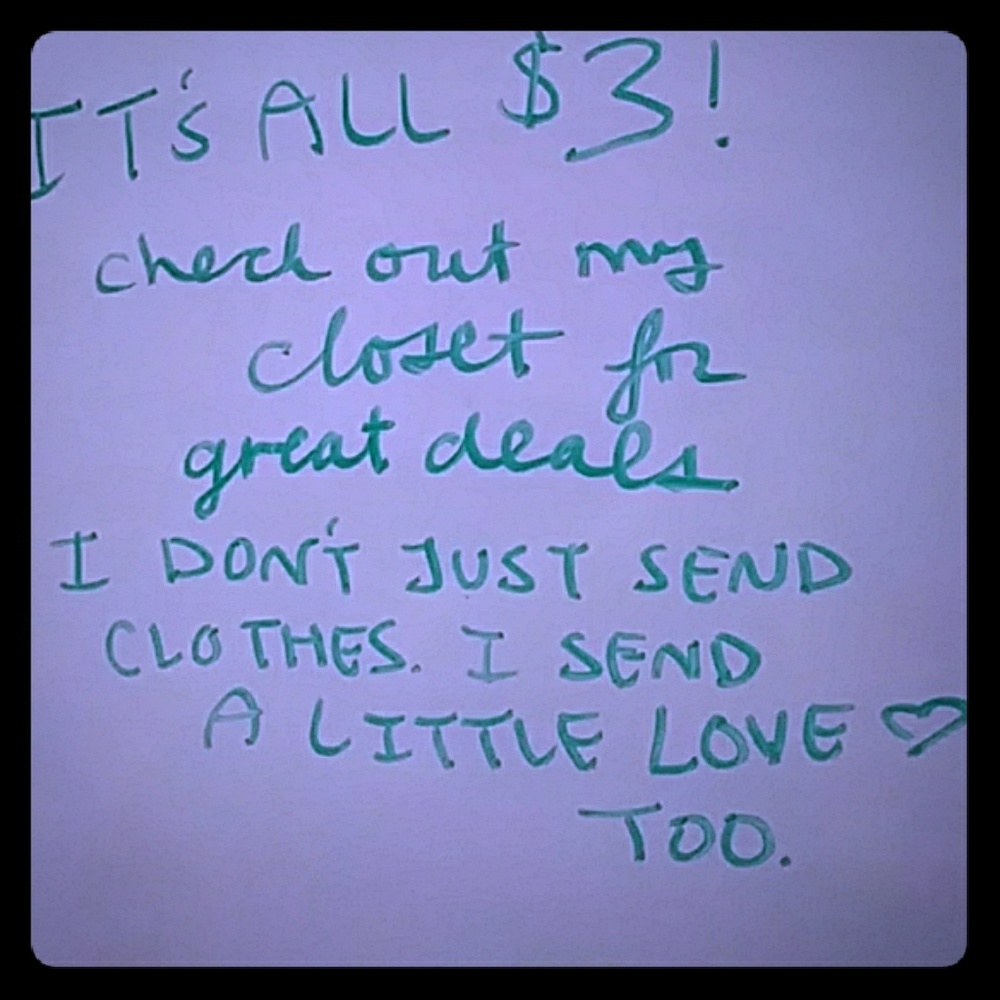 IT's ALL $3!
check out my
closet for
great deals
I DON'T JUST SEND
CLOTHES. I SEND
A LITTLE LOVE ♡
TOO.